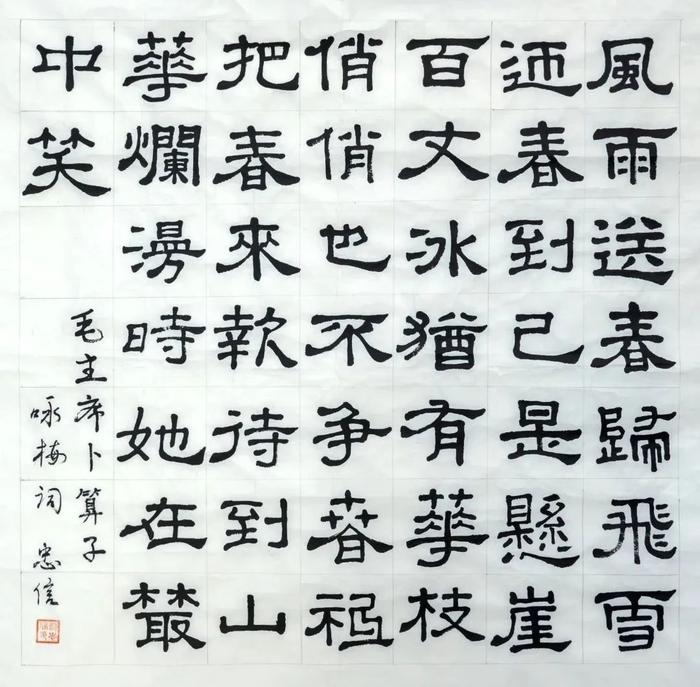 風雨送春歸飛雪
迎春到已是懸崖
百丈冰猶有華枝
俏俏也不争春祗
把春來報待到山
華爛漫時她在叢
中笑
毛主席卜算子
咏梅词 忠信